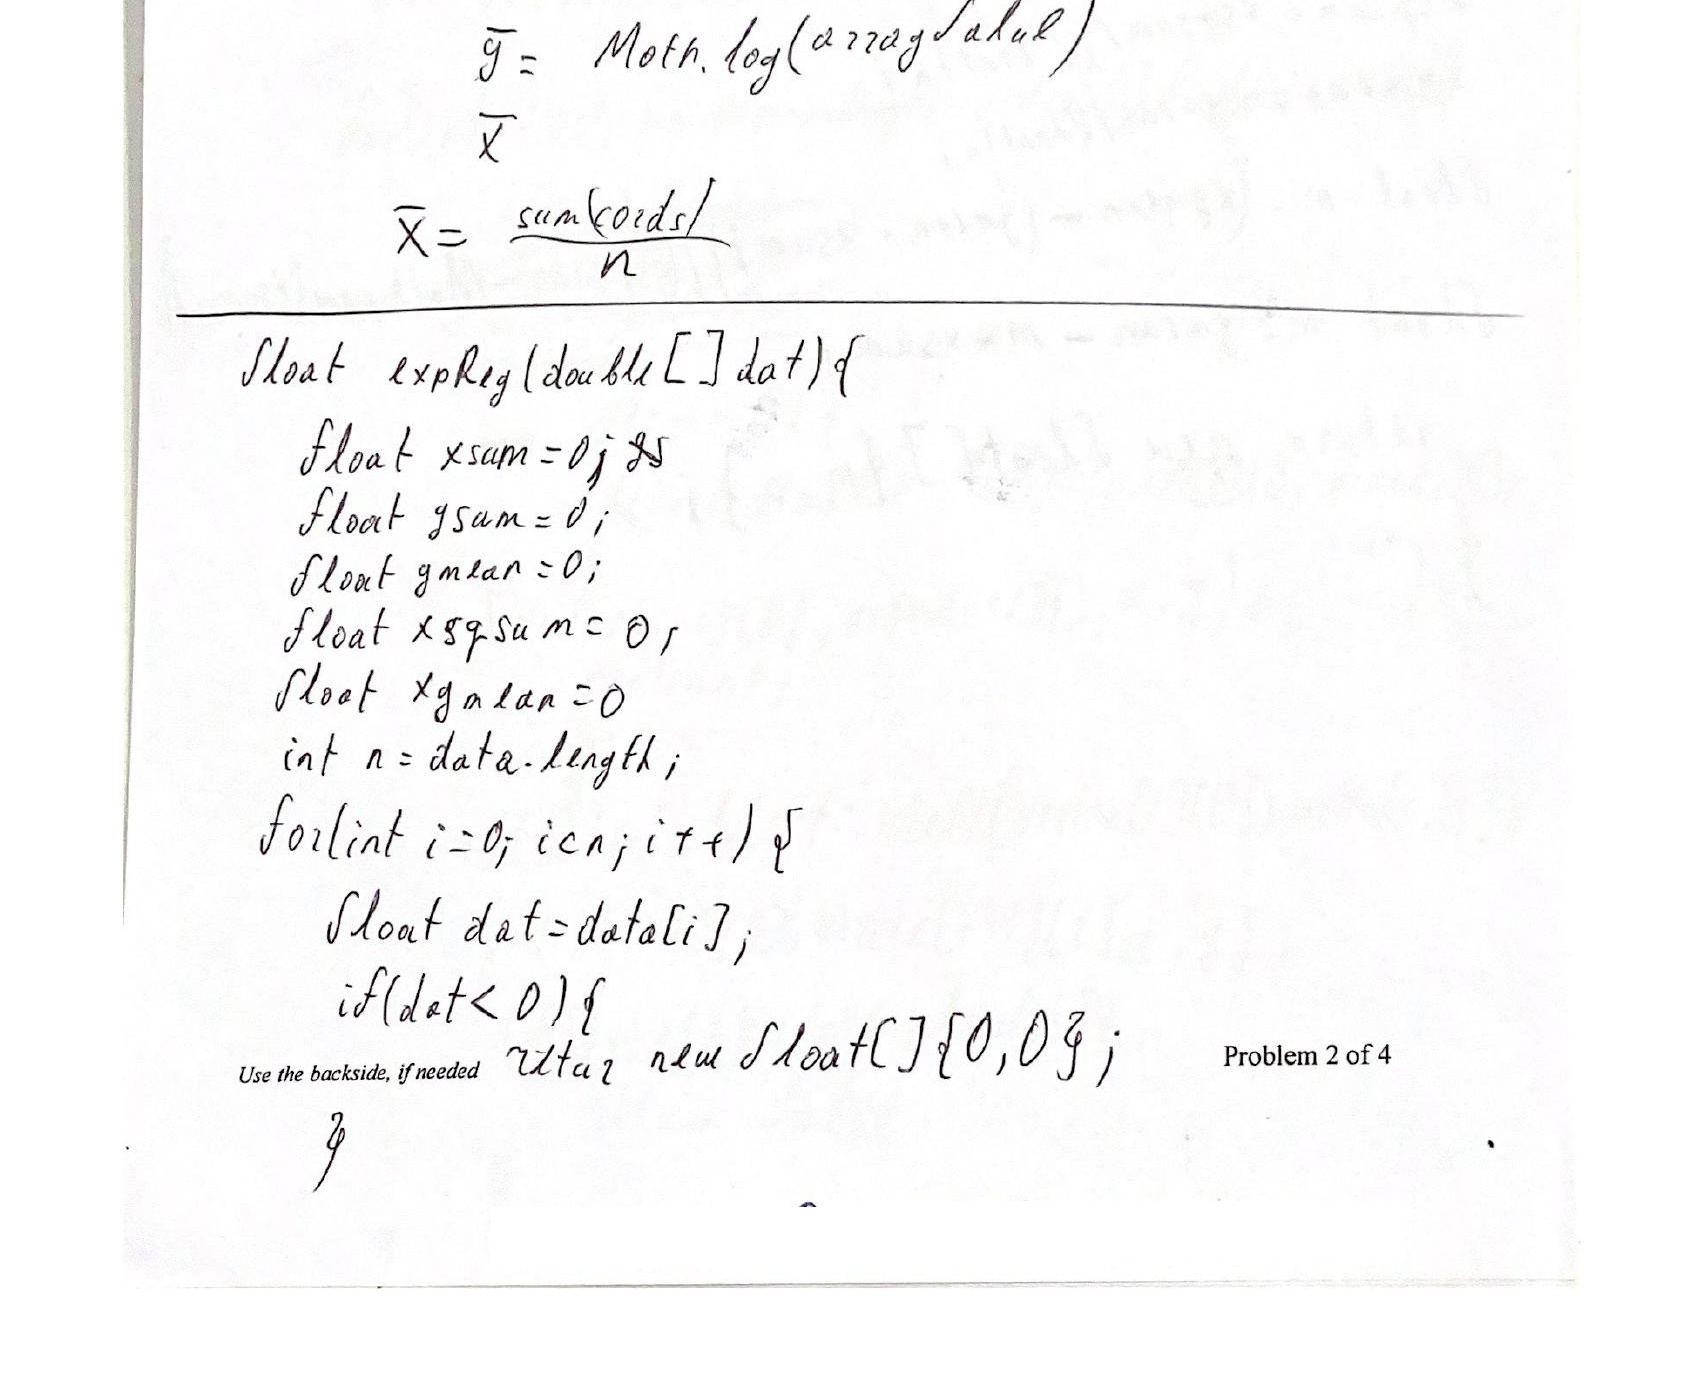 ȳ = Math.log(arrayValue)
x̄
x̄ = sum(cords)
n
float expReg(double[] dat){
float xsum=0;
float ysum=0;
float ymean=0;
float xsqsum=0;
float xymean=0
int n=data.length;
for(int i=0; i<n; i++){
float dat=data[i];
if(dat<0){
Use the backside, if needed new float[]{0,0}; Problem 2 of 4
}